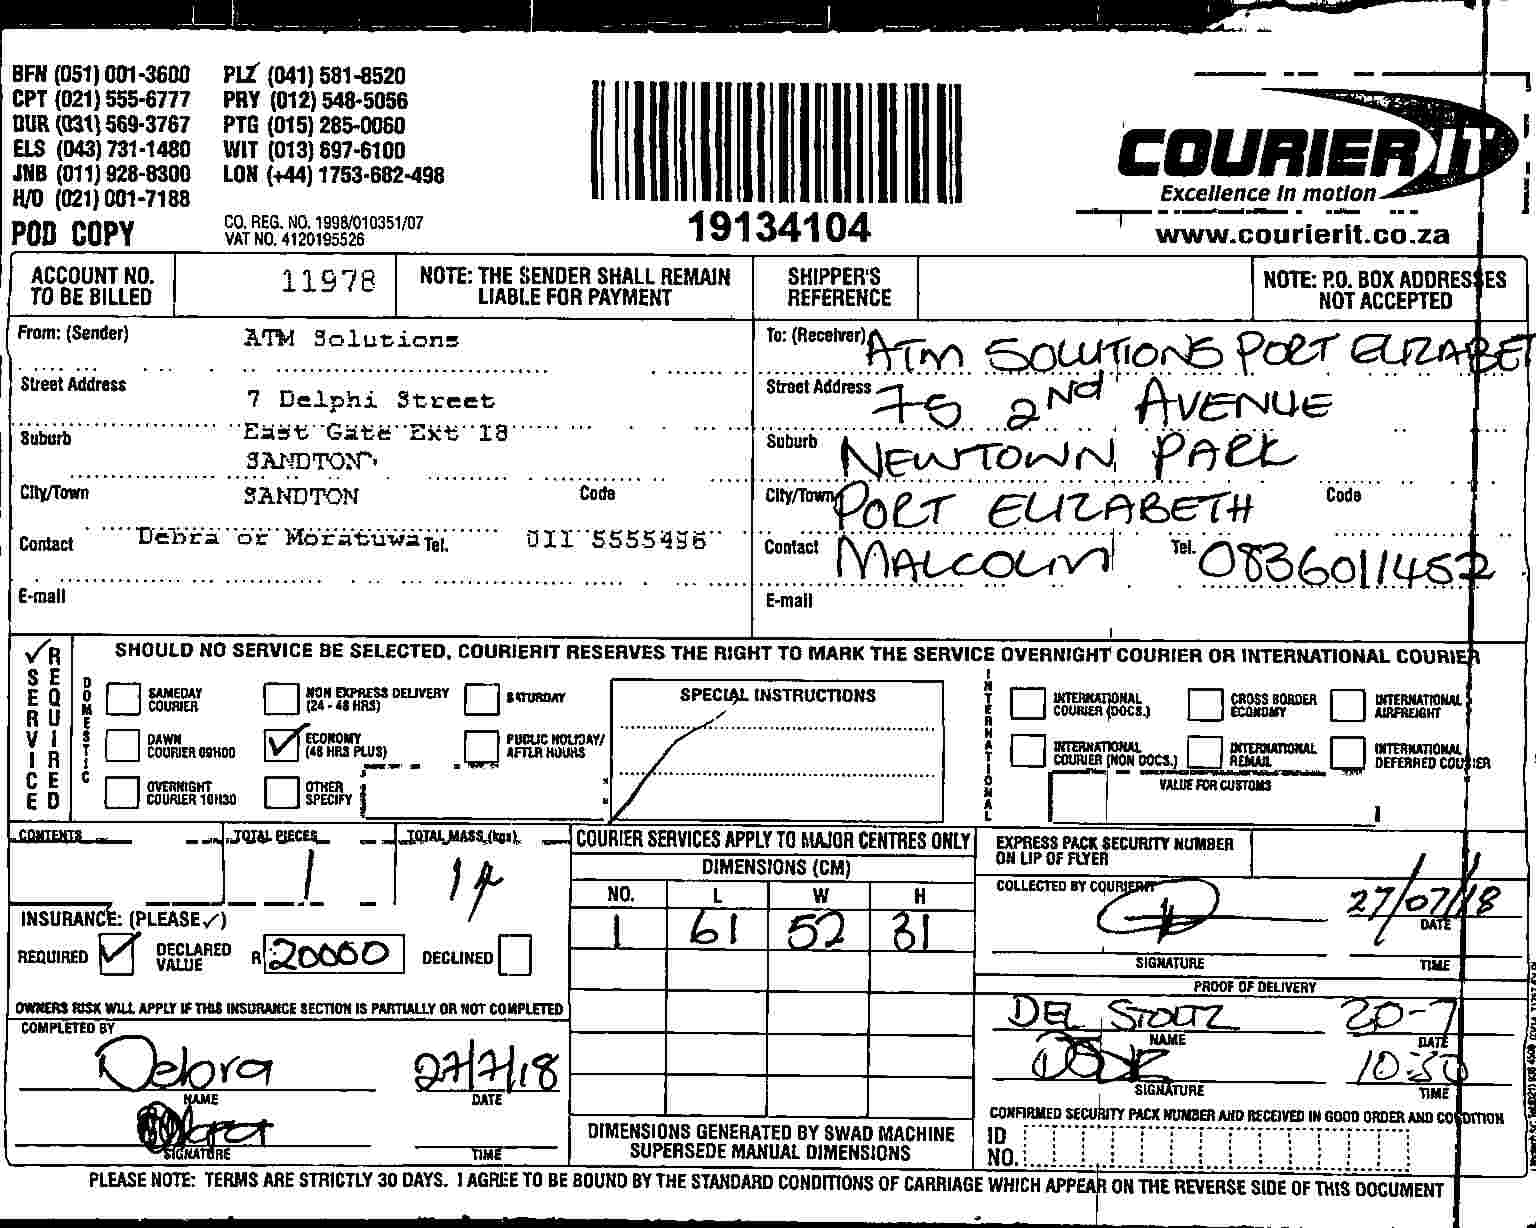 BFN (051) 001-3600 PLZ (041) 581-8520
CPT (021) 555-6777 PRY (012) 548-5056
DUR (031) 569-3767 PTG (015) 285-0060
ELS (043) 731-1480 WIT (013) 697-6100
JNB (011) 928-8300 LON (+44) 1753-682-498
H/O (021) 001-7188
POD COPY
CO. REG. NO. 1998/010351/07
VAT NO. 4120195526
19134104
COURIER IT
Excellence in motion
www.courierit.co.za
ACCOUNT NO. TO BE BILLED 11978
NOTE: THE SENDER SHALL REMAIN LIABLE FOR PAYMENT
SHIPPER'S REFERENCE
NOTE: P.O. BOX ADDRESSES NOT ACCEPTED
From: (Sender) ATM Solutions
Street Address 7 Delphi Street
Suburb East Gate Ext 18
SANDTON
City/Town SANDTON Code
Contact Debra or Moratuwa Tel. 011 5555496
E-mail
To: (Receiver) ATM SOLUTIONS PORT ELIZABET
Street Address 75 2nd AVENUE
Suburb NEWTOWN PARK
City/Town PORT ELIZABETH Code
Contact MALCOLM Tel. 0836011452
E-mail
SERVICE REQUIRED
SHOULD NO SERVICE BE SELECTED, COURIERIT RESERVES THE RIGHT TO MARK THE SERVICE OVERNIGHT COURIER OR INTERNATIONAL COURIER
DOMESTIC
SAMEDAY COURIER
NON EXPRESS DELIVERY (24 - 48 HRS)
SATURDAY
DAWN COURIER 09H00
ECONOMY (48 HRS PLUS)
PUBLIC HOLIDAY/ AFTER HOURS
OVERNIGHT COURIER 10H30
OTHER SPECIFY
SPECIAL INSTRUCTIONS
INTERNATIONAL
INTERNATIONAL COURIER (DOCS.)
CROSS BORDER ECONOMY
INTERNATIONAL AIRFREIGHT
INTERNATIONAL COURIER (NON DOCS.)
INTERNATIONAL REMAIL
INTERNATIONAL DEFERRED COURIER
VALUE FOR CUSTOMS
CONTENTS
TOTAL PIECES 1
TOTAL MASS (kgs)
INSURANCE: (PLEASE ✓)
REQUIRED ✓ DECLARED VALUE R 20000 DECLINED
OWNERS RISK WILL APPLY IF THIS INSURANCE SECTION IS PARTIALLY OR NOT COMPLETED
COMPLETED BY
Debra 27/7/18
NAME DATE
SIGNATURE TIME
COURIER SERVICES APPLY TO MAJOR CENTRES ONLY
DIMENSIONS (CM)
NO. L W H
1 61 52 31
DIMENSIONS GENERATED BY SWAD MACHINE
SUPERSEDE MANUAL DIMENSIONS
EXPRESS PACK SECURITY NUMBER ON LIP OF FLYER
COLLECTED BY COURIERIT
27/07/18
DATE
SIGNATURE TIME
PROOF OF DELIVERY
DEL STOLTZ 20-7
NAME DATE
10:30
SIGNATURE TIME
CONFIRMED SECURITY PACK NUMBER AND RECEIVED IN GOOD ORDER AND CONDITION
ID NO.
PLEASE NOTE: TERMS ARE STRICTLY 30 DAYS. I AGREE TO BE BOUND BY THE STANDARD CONDITIONS OF CARRIAGE WHICH APPEAR ON THE REVERSE SIDE OF THIS DOCUMENT